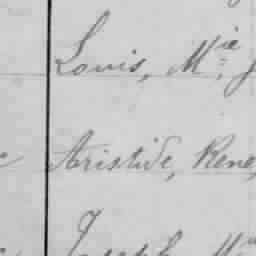 Louis, Mie J
Aristide, Rene,
Joseph Mie